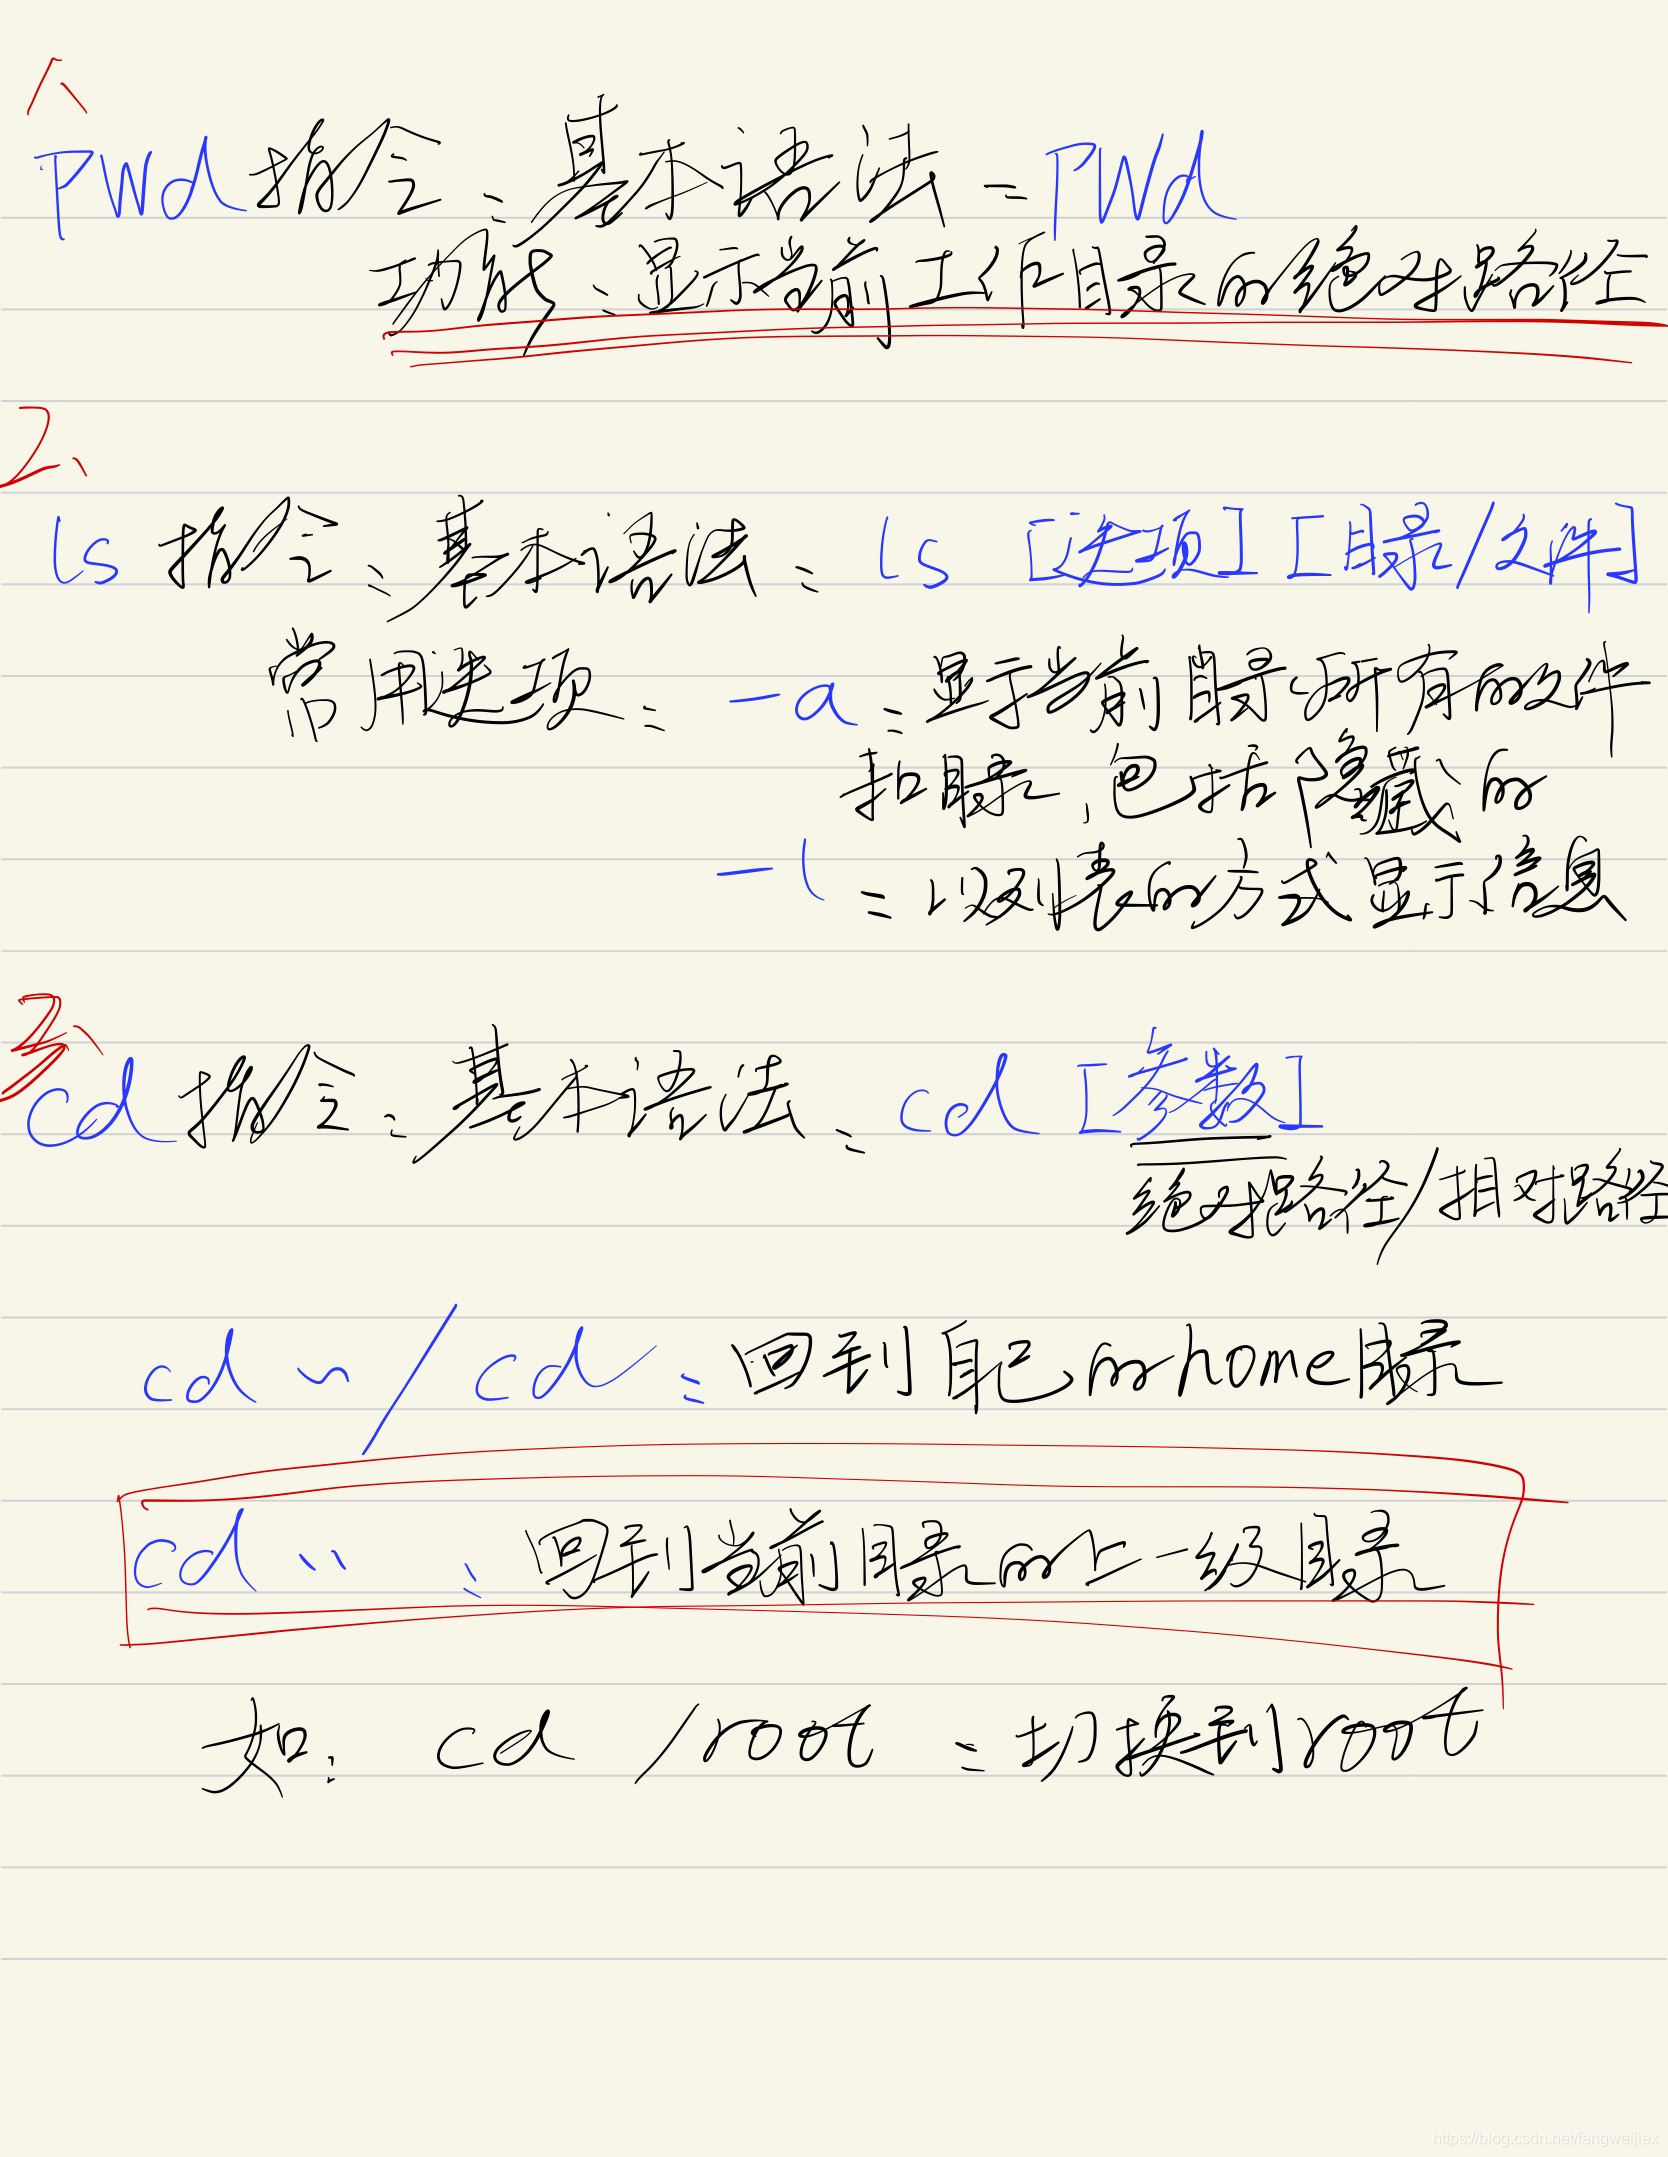 1、
pwd指令:基本语法:pwd
功能:显示当前工作目录的绝对路径
2、
ls 指令:基本语法: ls [选项] [目录/文件]
常用选项: -a:显示当前目录所有的文件
和目录,包括隐藏的
-l :以列表的方式显示信息
3、
cd指令:基本语法:cd [参数]
绝对路径/相对路径
cd ~/cd:回到自己的home目录
cd .. :回到当前目录的上一级目录
如: cd /root :切换到root
https://blog.csdn.net/fangweijiex